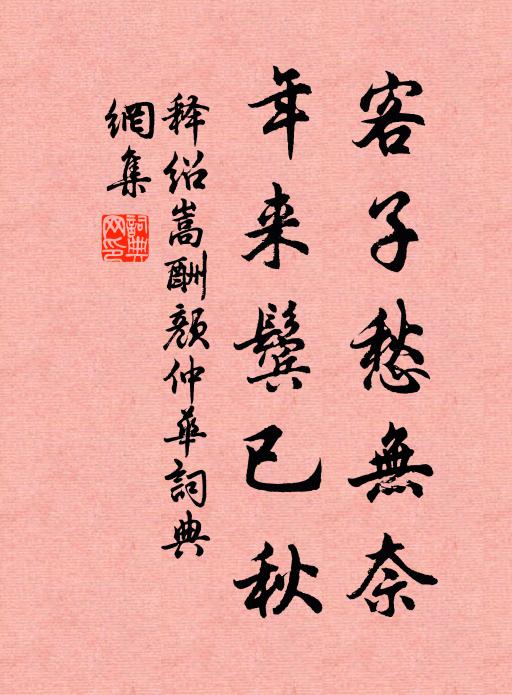 客子愁無奈
年来鬓已秋
释绍嵩酬颜仲華詞典
網集
詞典網印